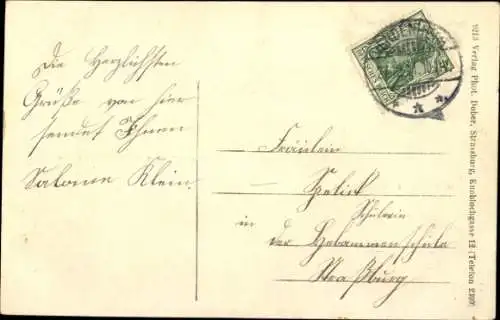 Die Herzlichsten
Grüße von hier
sendet Ihnen
Salome Klein.
Fräulein
Schülerin
in
der Hebammenschule
Straßburg
9215 Verlag Phot. Dober, Strassburg, Knoblochgasse 12 (Telefon